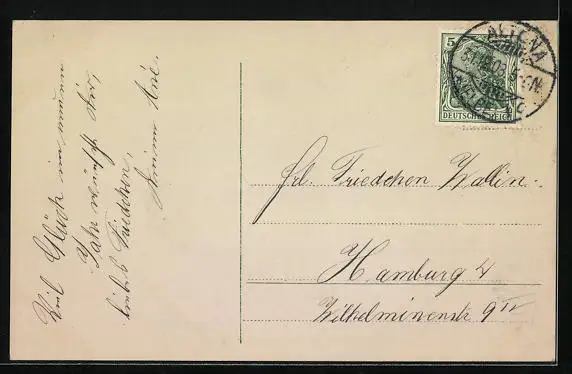 Viel Glück im neuen
Jahr wünscht dir,
liebes Friedchen,
5
DEUTSCHES REICH
ALTONA
31.12.09
Frl. Friedchen Wallin
Hamburg 4
Wilhelminenstr 9 II